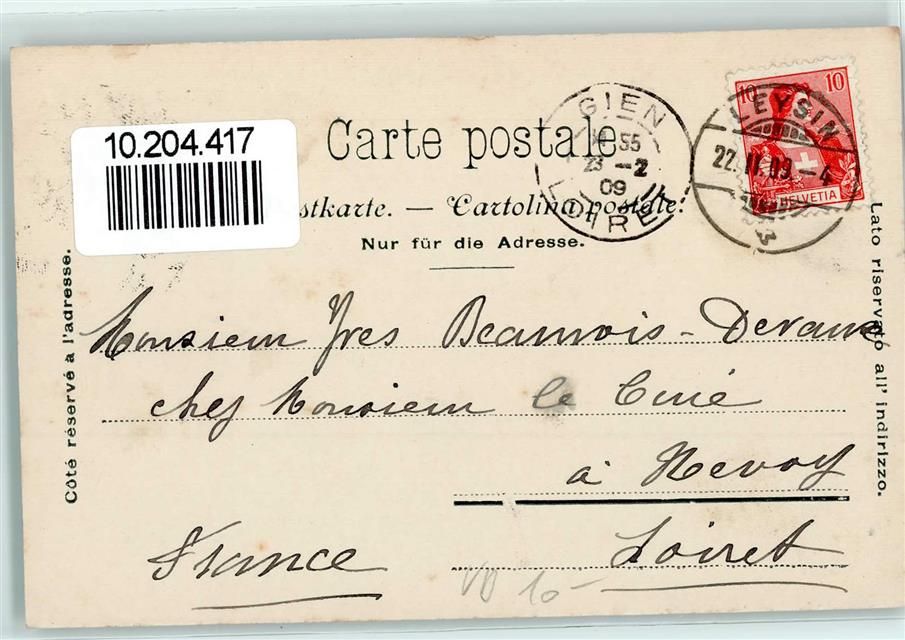 10.204.417
Carte postale
stkarte. — Cartolina postale.
Nur für die Adresse.
Côté réservé a l'adresse.
Lato riservato all' indirizzo.
GIEN
55
23 - 2
09
LOIRET
10 10
HELVETIA
LEYSIN
22.II.09.-4
Monsieur Yves Beauvois-Devaux
chez Monsieur le Curé
à Nevoy
Loiret
France
VD 10-